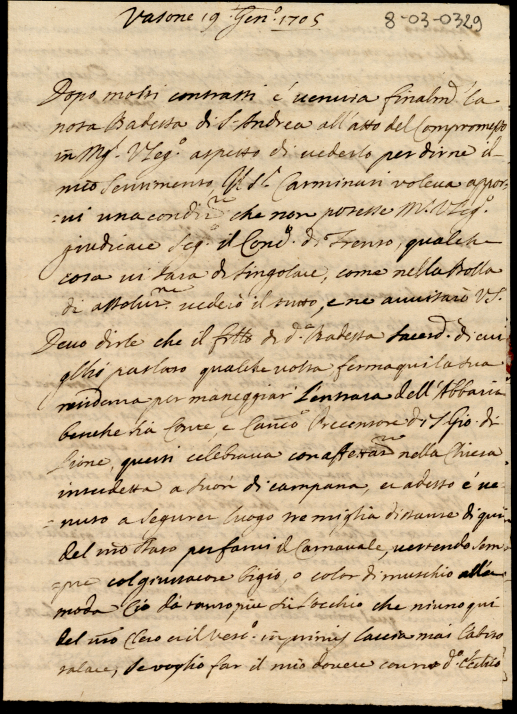 Vasone 19 Gen.º 1705
8-03-0329
Dopo molti contrasti è venuta finalm.ᵉ la
nota Badessa di S. Andrea all'atto del Compromesso
in M.ʳ V. Leg.º aspetto di vederlo per dirne il
mio sentimento. Carminati voleva appor-
=vi una condiz.ⁿᵉ che non potesse M.ʳ V. Leg.º
giudicare seg.º il Conc.º di Trento, qualche
cosa vi sarà di singolare, come nella Bolla
di assoluz.ⁿᵉ vederò il tutto, e ne avvisarò V.S.
Devo dirle che il fꝛllo di d.ᵃ Badessa sacerd. di cui
parlato qualche volta ferma qui la sua
residenza per maneggiar l'entrata dell'Abbazia
benche sia Conte e Canco Precentore di S. Gio. di
Lione, questi celebrava con affettaz.ⁿᵉ nella Chiesa
interdetta a suon di campana, et adesso è ve-
nuto a Seguret luogo tre miglia distante di qui
del mio Stato per farvi il Carnavale, vestendo sem-
=pre col giustacore bigio, o color di muschio alla
moda. Ciò dà tanto più su l'occhio che niuno qui
del mio Clero et il Vesc.º in primis lascia mai l'abito
talare, se voglio far il mio dovere contro d.º Eccl.ᶜᵒ